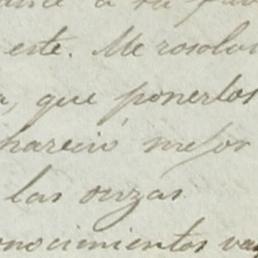 a su
este. Me resolv
que ponerlos
pareció mejor
las onzas
onocimientos va